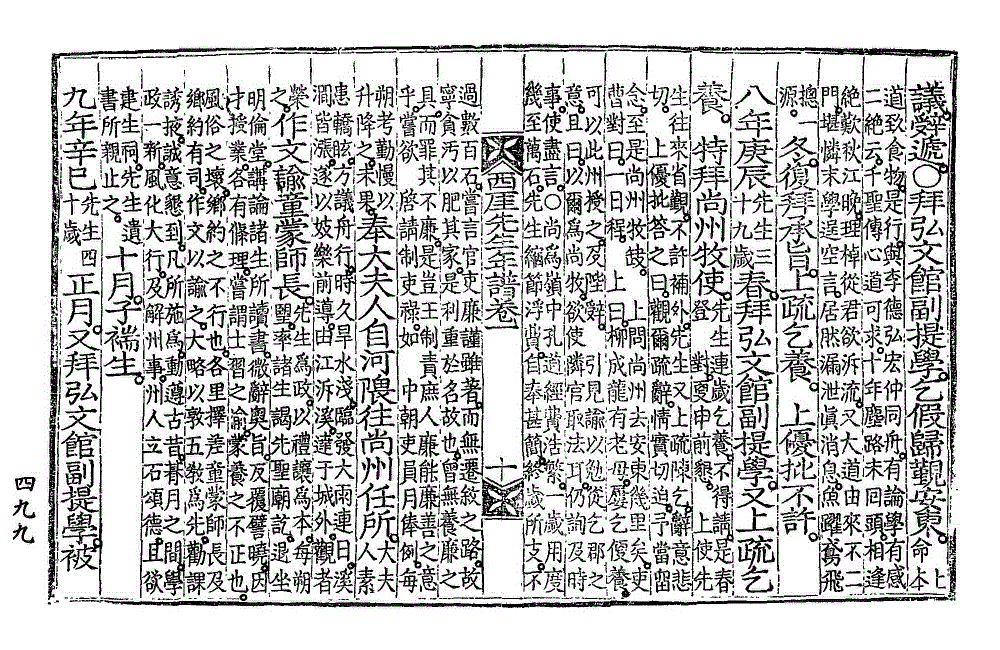 議辭遞○拜弘文館副提學乞假歸覲安東上命本
道致食物是行與李德弘宏仲同舟有論學有感
二絶云千聖傳心道可求十年塵路未回頭相逢
絶歎秋江晚理棹從君欲泝流又大道由來不二
門堪憐末學逞空言居然漏泄眞消息魚躍鳶飛
摠一源 冬復拜承旨上疏乞養 上優批不許
八年庚辰先生三十九歲春拜弘文館副提學又上疏乞
養 特拜尚州牧使先生連歲乞養不得請是春登 對更申前懇 上使先
生往來省覲不許補外先生又上疏陳乞辭意悲
切 上優批答之曰觀爾疏辭情實切迫予當留
念至是尚州牧缺 上問尚州去安東幾里矣吏
曹對曰一日程 上曰柳成龍有老母屢乞便養
可以此州授之及陛辭 引見諭以勉從乞郡之
意且曰以爾爲尚牧欲使隣官取法耳仍詢及時
事使盡言○尚爲嶺中孔道經費浩繁一歲用度
幾至萬石先生縮節浮費自奉甚簡終歲所支不
西厓先生年譜卷一 十一
過數百石嘗言官吏廉謹雖著而無還敍之路故
寧貪污以肥其家是利重於名故也曾無養廉之
具而罪其不廉是豈王制責庶人廉能廉善之意
乎嘗欲 啓請制吏祿如 中朝吏員月俸例每
朔考勤慢以升降之未果 奉大夫人自河隈往尚州任所大夫人素
患轎眩方議舟行時久旱水淺臨發大雨連日溪
澗皆漲遂以妓樂前導由江泝溪達于城外觀者
榮之 作文諭童蒙師長先生爲政以禮讓爲本每朔望率諸生謁先聖廟訖退坐
明倫堂講論諸生所讀書微辭奧旨反覆譬曉因
才授業各有條理嘗謂士習之渝蒙養之不正也
風俗之壞鄕約之不行也各里擇差童蒙師長及
鄕約有司作文以諭之大略以敦五敎爲先勸課
誘掖誠意懇到凡所施爲動遵古昔朞月之間學
政一新風化大行及解州事州人立石頌德且欲
建生祠先生遺書所親止之 十月子褍生
九年辛巳先生四十歲 正月又拜弘文館副提學被
四九九